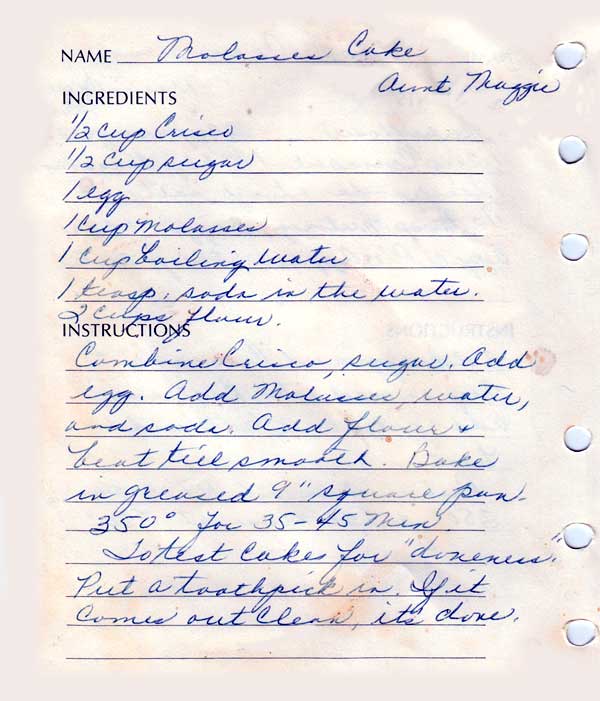 NAME Molasses Cake
Aunt Maggie
INGREDIENTS
1/2 cup Crisco
1/2 cup sugar
1 egg
1 cup molasses
1 cup boiling water
1 teasp. soda in the water.
2 cups flour.
INSTRUCTIONS
Combine Crisco, sugar. Add
egg. Add Molasses, water,
and soda. Add flour &
beat till smooth. Bake
in greased 9" square pan.
350° for 35-45 Min.
To test cakes for "doneness".
Put a toothpick in. If it
comes out clean, its done.